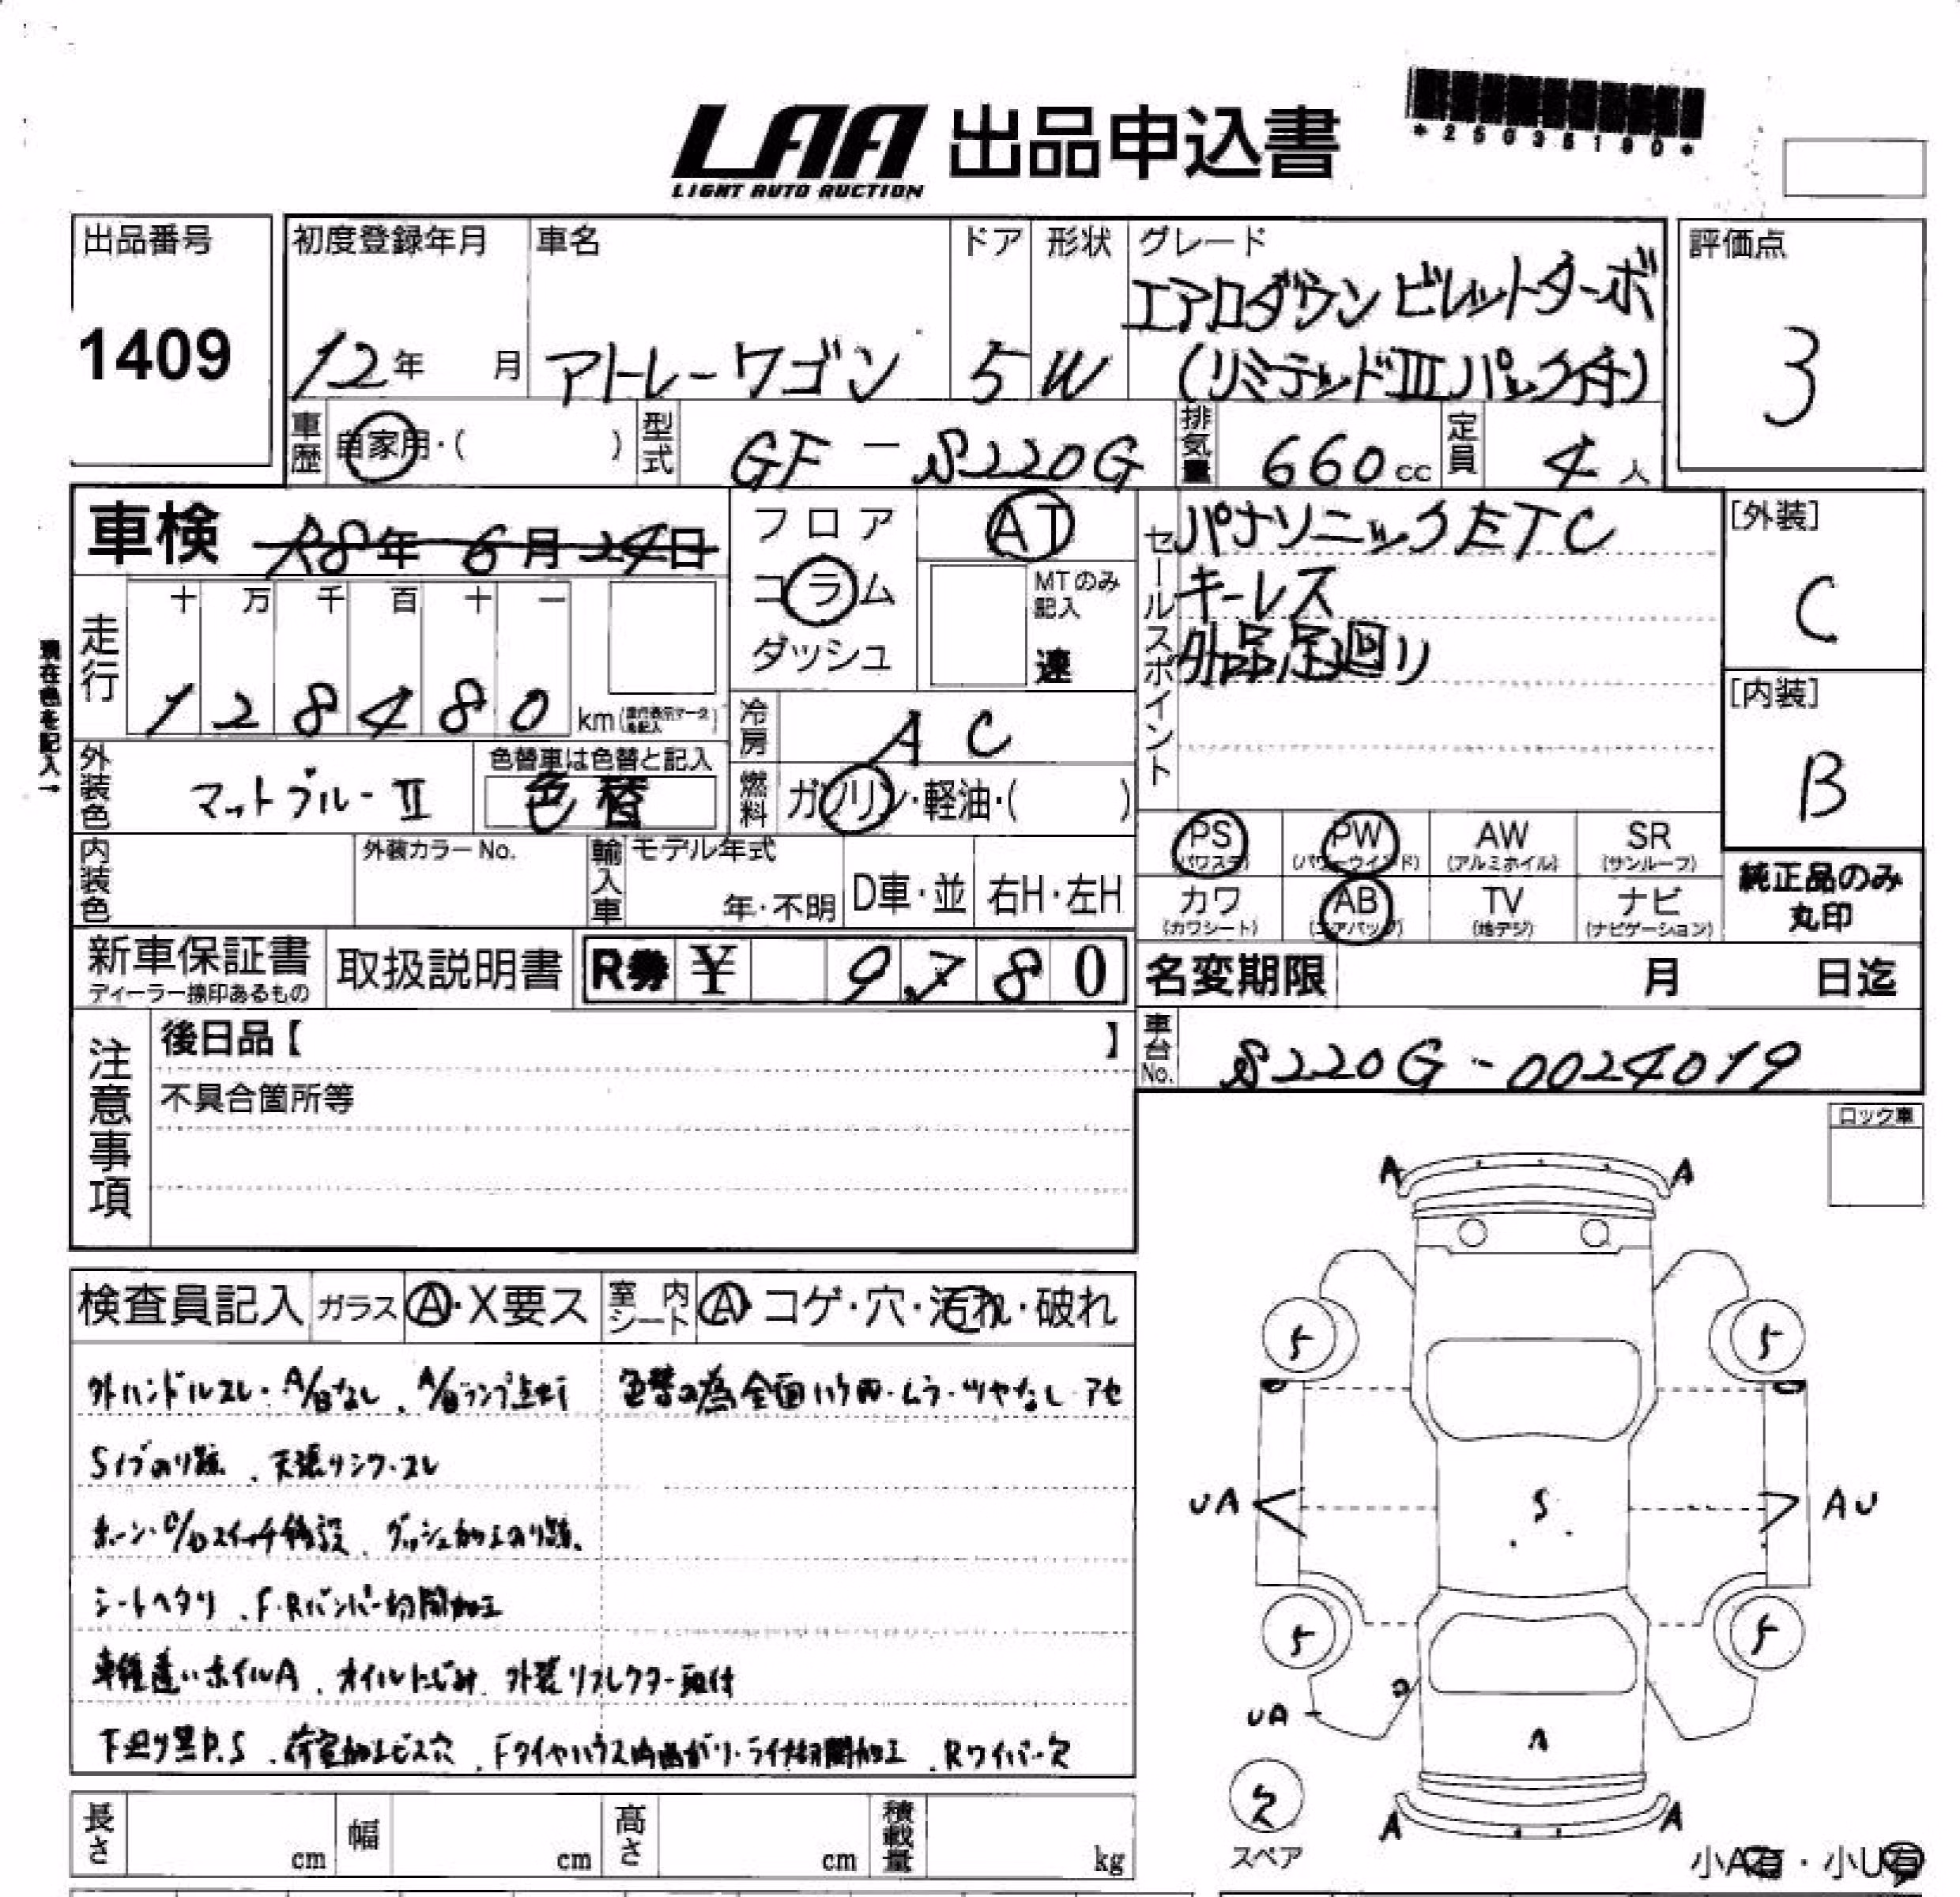 LAA 出品申込書
LIGHT AUTO AUCTION
*25035190*
出品番号
1409
初度登録年月
12年 月
車名
アトレーワゴン
ドア
5
形状
W
グレード
エアロダウンビレットターボ
(リミテッドⅢパック付)
評価点
3
車歴 自家用・( )
型式 GF-S220G
排気量 660cc
定員 4人
車検 R8年 6月24日
フロア
コラム
ダッシュ
AT
MTのみ記入
速
セールスポイント
パナソニックETC
キーレス
外品足廻り
[外装]
C
[内装]
B
現在色を記入→
走行
十 万 千 百 十 一
1 2 8 4 8 0 km
冷房 AC
燃料 ガソリン・軽油・( )
外装色 マットブルーⅡ
色替車は色替と記入
色替
内装色
外装カラーNo.
輸入車
モデル年式
年・不明
D車・並
右H・左H
PS (パワステ)
PW (パワーウインド)
AW (アルミホイル)
SR (サンルーフ)
カワ (カワシート)
AB (エアバッグ)
TV (地デジ)
ナビ (ナビゲーション)
純正品のみ
丸印
新車保証書
ディーラー捺印あるもの
取扱説明書
R券 ¥ 9,780
名変期限 月 日迄
車台No. S220G-0024019
注意事項
後日品【 】
不具合箇所等
ロック車
検査員記入 ガラス A・X要ス 室内シート A・コゲ・穴・汚れ・破れ
外ハンドルスレ・A/Bなし、A/Bランプ点灯
色替の為全面ハゲ凹・ムラ・ツヤなし・アセ
Sイブのり跡、天張リシワ・スレ
ホーン・O/Dスイッチ移設、ダッシュ加工のり跡、
シートヘタリ、F・Rバンパー切開加工
車種違いホイルA、オイルにじみ、外装リフレクター取付
下廻り黒P.S、荷室加工ビス穴、Fタイヤハウス内曲がり・ライナー切開加工、Rワイパー欠
A A
5 5
UA S AU
5 5
UA
A
欠
スペア
A A
小A有・小U有
長さ cm
幅 cm
高さ cm
積載量 kg